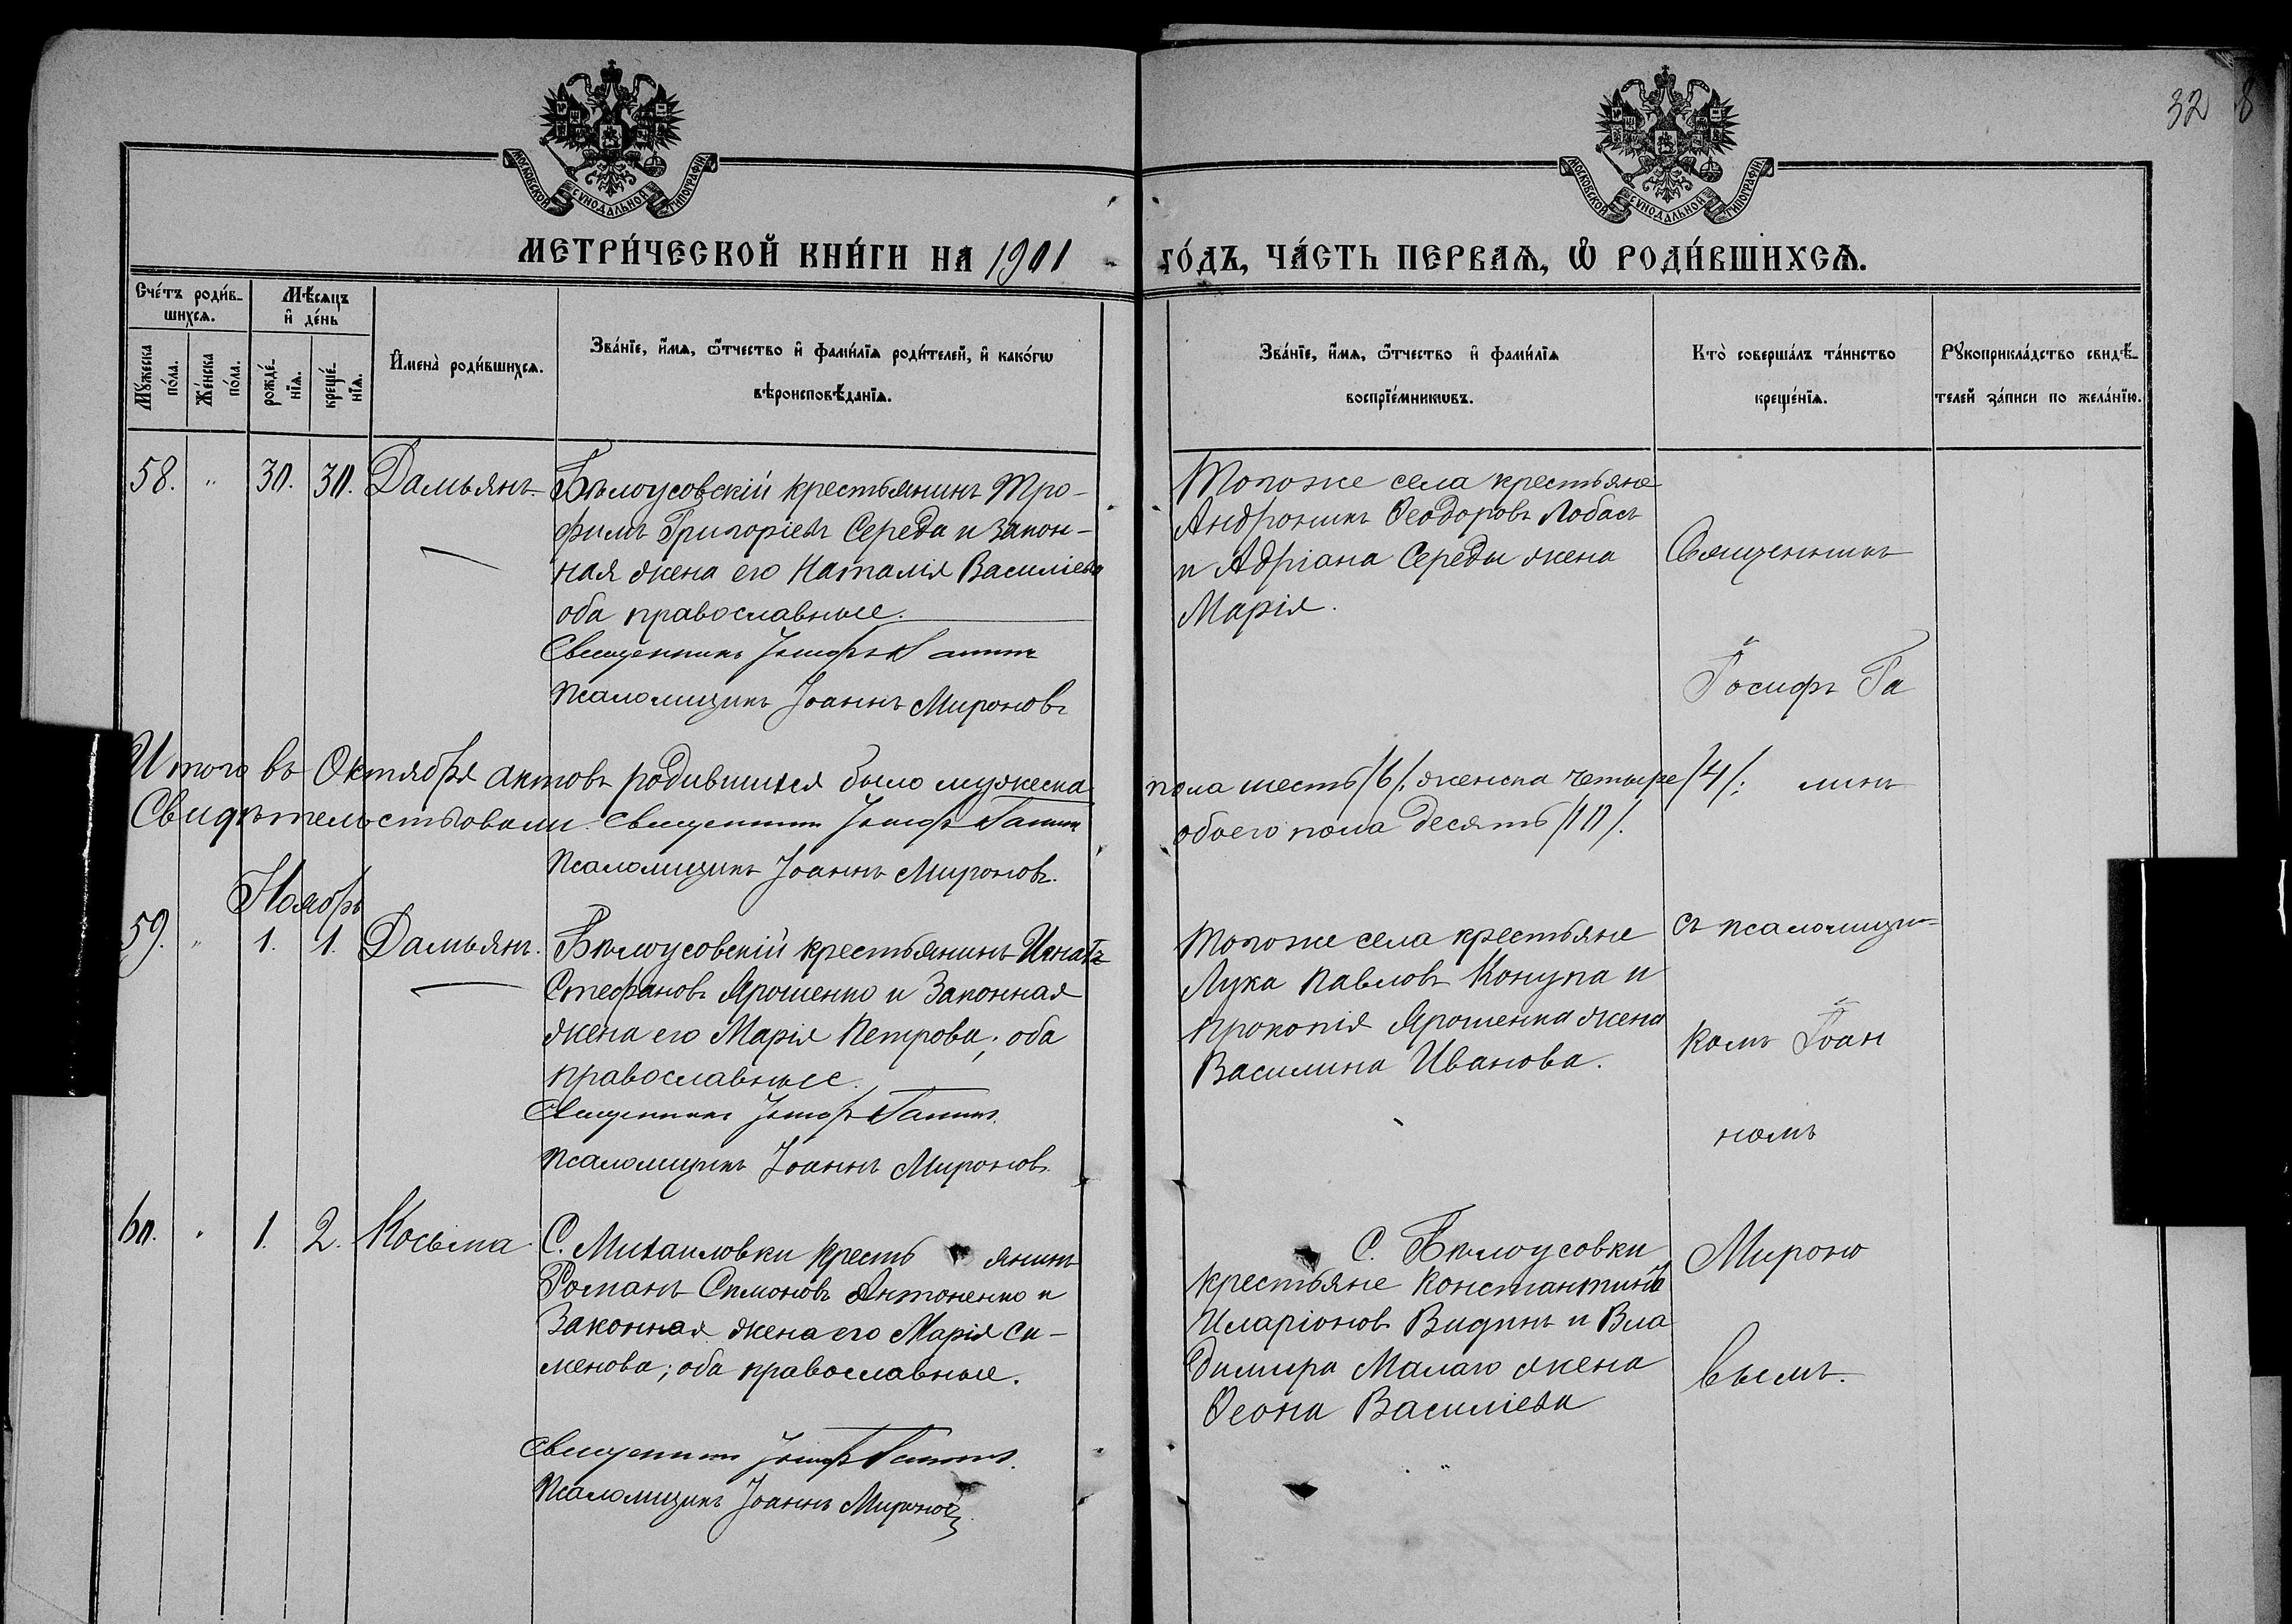 32
МОСКОВСКОЙ СУНОДАЛЬНОЙ ТИПОГРАФІИ
МОСКОВСКОЙ СУНОДАЛЬНОЙ ТИПОГРАФІИ
МЕТРИ́ЧЕСКОЙ КНИ́ГИ НА 1901 ГО́ДЪ, ЧА́СТЬ ПЕРВАѦ, Ѡ҆ РОДИ́ВШИХСѦ.
Сче́тъ роди́в-
шихсѧ.
Мѣ́сѧцъ
и҆ де́нь
Мꙋ́жеска
по́ла.
Же́нска
по́ла.
рожде́-
нїѧ.
креще́-
нїѧ.
И҆мена̀ роди́вшихсѧ.
Зва́нїе, и҆́мѧ, ѻ҆́тчество и҆ фами́лїѧ роди́телей, и҆ како́гѡ
вѣроисповѣ́данїѧ.
Зва́нїе, и҆́мѧ, ѻ҆́тчество и҆ фами́лїѧ
воспрїе́мникѡвъ.
Кто̀ соверша́лъ та́инство
креще́нїѧ.
Рꙋкоприкла́дство свидѣ́-
телей за́писи по жела́нїю.
58. " 30. 30. Дамьянъ.
Бѣлоусовскій крестьянинъ Тро-
фимъ Григоріевъ Середа и закон-
ная жена его Наталія Василіева
оба православные.
Священникъ Іосифъ Галинъ
Псаломщикъ Іоаннъ Мироновъ
Тогоже села крестьяне
Андроникъ Ѳеодоровъ Лобасъ
и Адріана Середы жена
Марія.
Священникъ
Іосифъ Га
Итого въ Октября актовъ родившихся было мужеска пола шесть /6/, женска четыре /4/; линъ
Свидѣтельствовали: Священникъ Іосифъ Галинъ обоего пола десять /10/.
Псаломщикъ Іоаннъ Мироновъ.
Ноябрь
59. " 1. 1. Дамьянъ.
Бѣлоусовскій крестьянинъ Игнатъ
Стефановъ Ярошенко и законная
жена его Марія Петрова; оба
православные.
Священникъ Іосифъ Галинъ.
Псаломщикъ Іоаннъ Мироновъ.
Тогоже села крестьяне
Лука Павловъ Конупа и
Прокопія Ярошенка жена
Василина Иванова.
съ псаломщи-
комъ Іоан
номъ
60. " 1. 2. Косьма
С. Михаиловки кресть янинъ
Романъ Симоновъ Антоненко и
законная жена его Марія Си-
менова; оба православные.
Священникъ Іосифъ Галинъ.
Псаломщикъ Іоаннъ Мироновъ
С. Бѣлоусовки
крестьяне Константинъ
Иларіоновъ Видинъ и Вла
димира Малаго жена
Ѳеона Василіева
Мироно
вымъ.